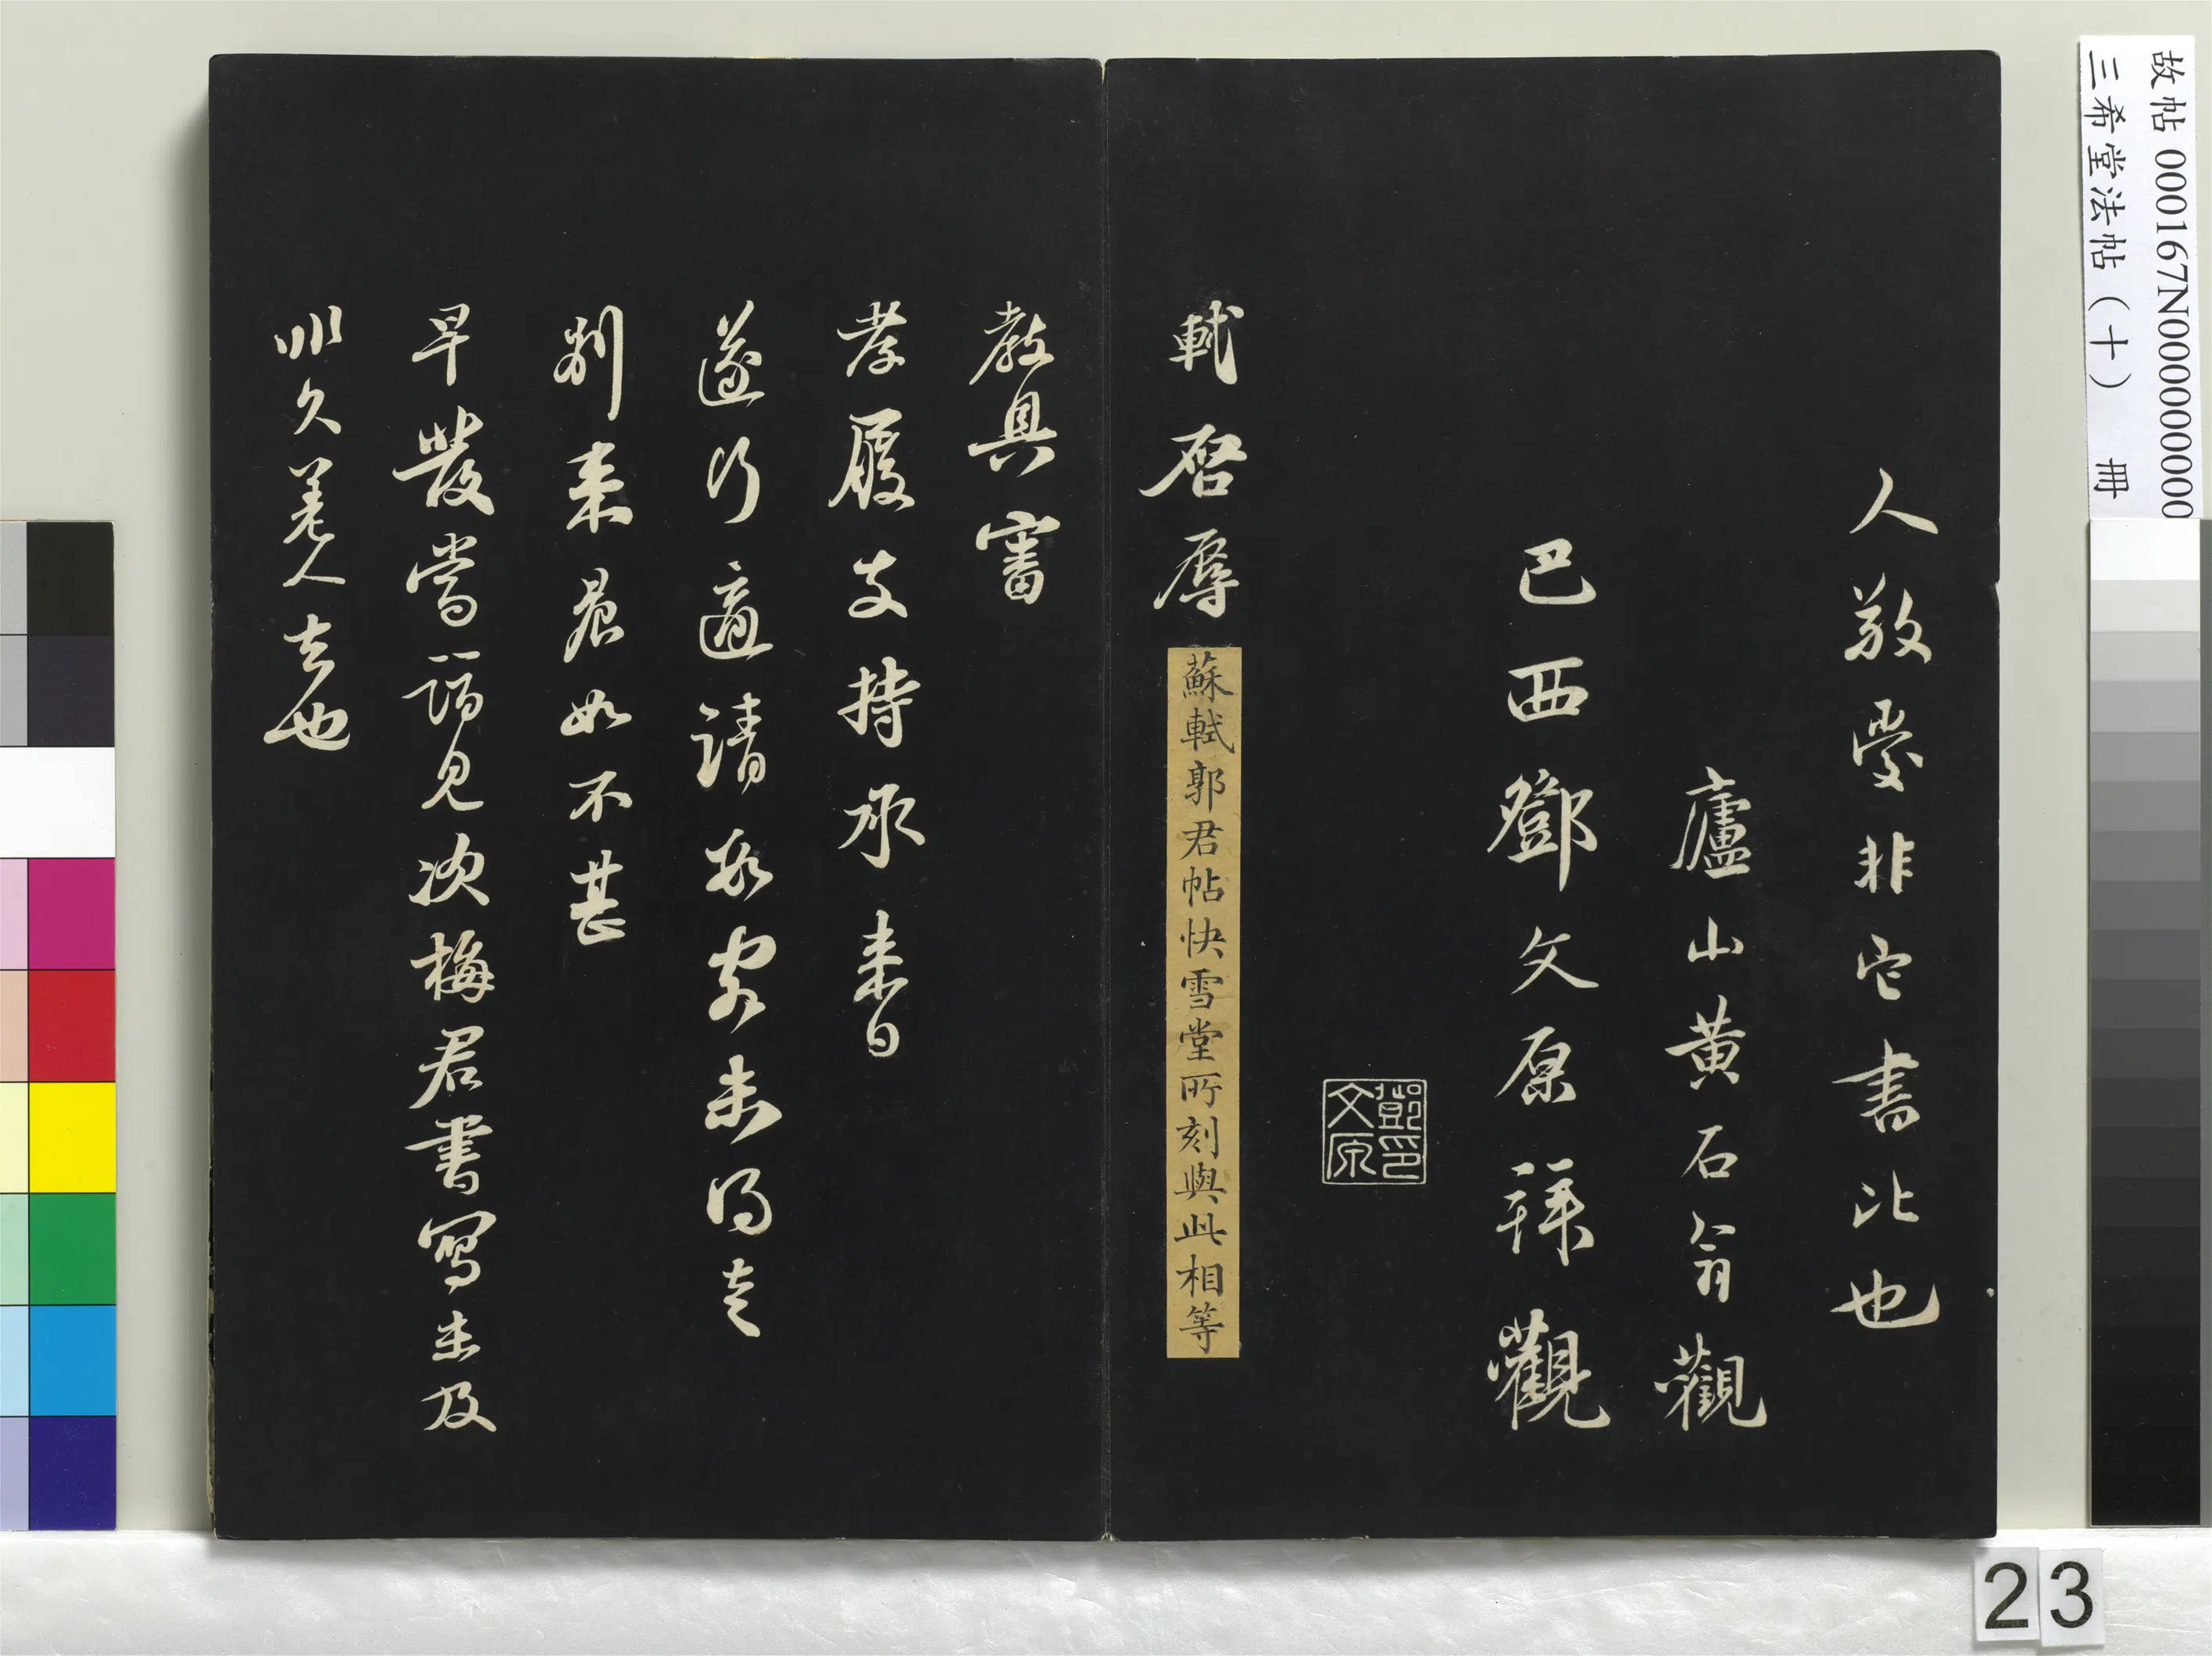 故帖 000167N000000000
三希堂法帖（十） 冊
人敬愛非它書比也
廬山黃石翁觀
巴西鄧文原拜觀
鄧印
文原
軾啓辱
蘇軾郭君帖快雪堂所刻與此相等
教具審
孝履支持承來日
遂行適請數客未得走
別來晨如不甚
早發當詣見次梅君書寫未及
非久差人去也
23